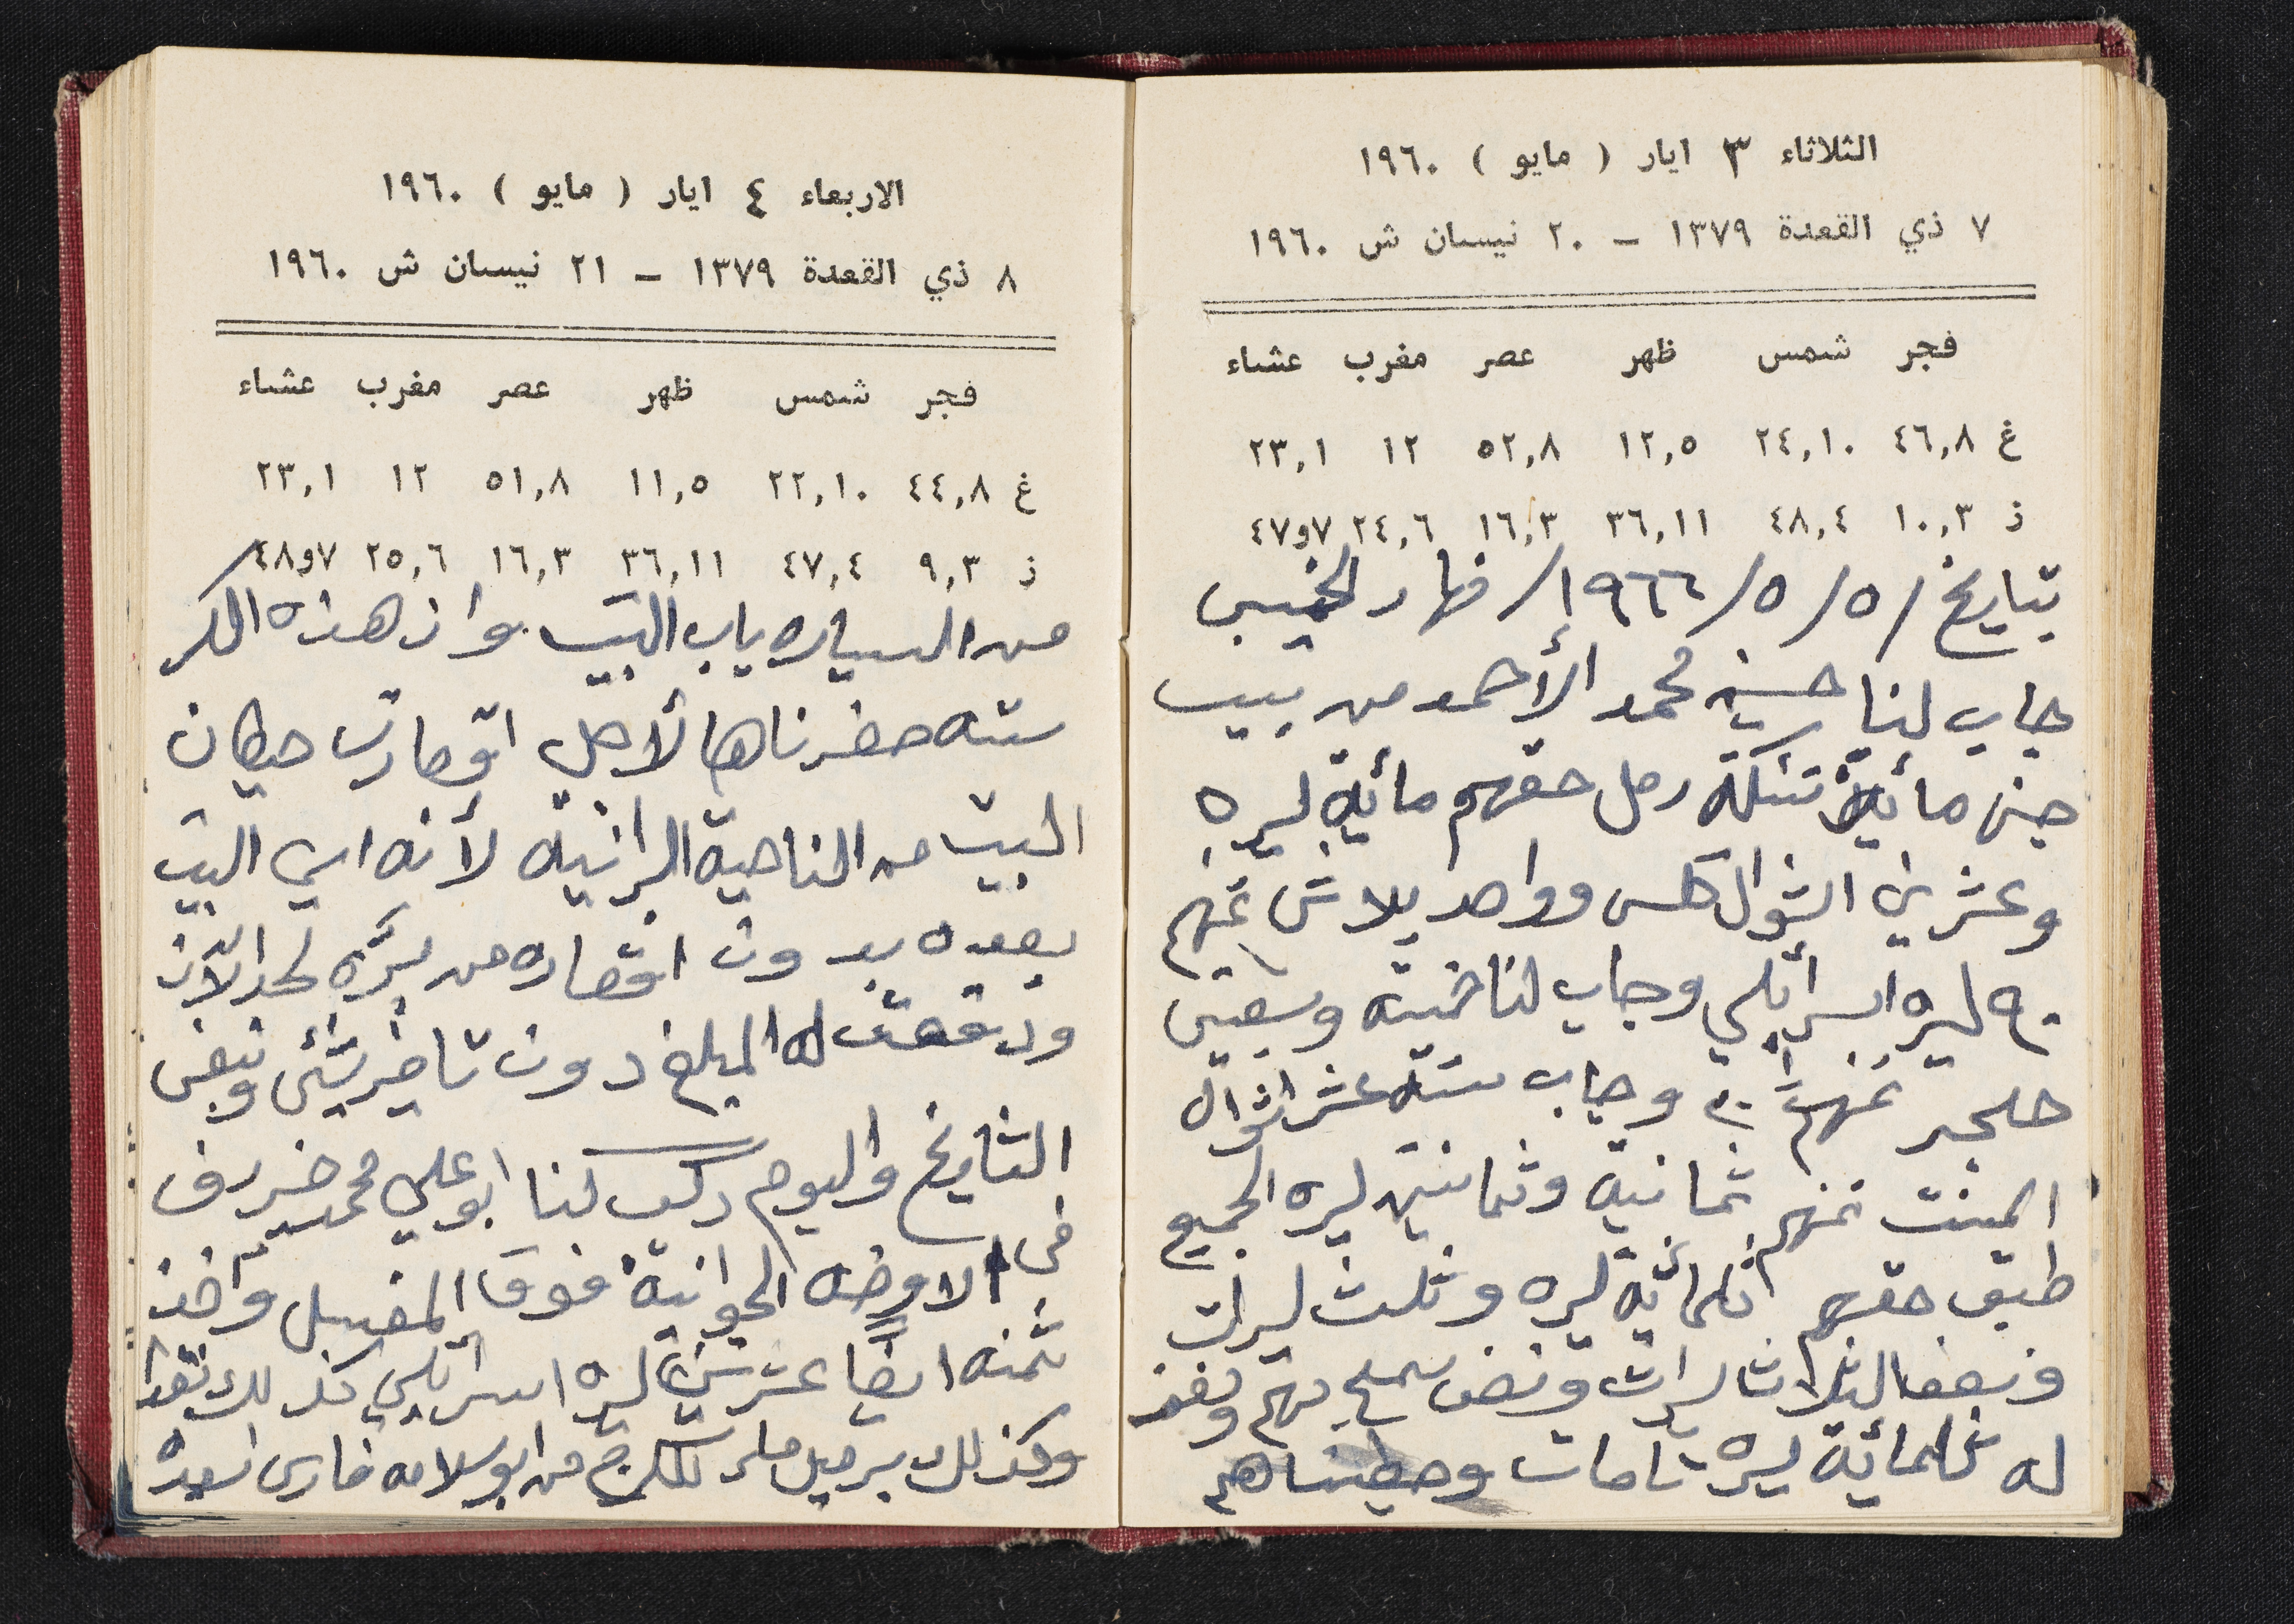 الثلاثاء ٣ ايار ( مايو ) ١٩٦٠
٧ ذي القعدة ١٣٧٩ - ٢٠ نيسان ش ١٩٦٠
فجر شمس ظهر عصر مغرب عشاء
غ ٤٦,٨ ٢٤,١٠ ١٢,٥ ٥٢,٨ ١٢ ٢٣,١
ذ ١٠,٣ ٤٨,٤ ٣٦,١١ ١٦,٣ ٢٤,٦ ٧و٤٧
بتاريخ /٥/٥/١٩٦٦/ نهار الخميس
جاب لنا حسين محمد الأحمد من بيت
جن مائية تنكة رمل حقهم مائية ليره
وعشرين اشوال كلس وواحد بلاش ثمنهم
٩٠ ليره اسرائلي وجاب لنا خمسه وسبعين
حجر ثمنهم ٢٠ وجاب سته عشر اشوال
المينت ثمنهم ثمانية وثمانين ليره الجميع
طبق حقهم ثلمائية ليره وثلث ليرات
ونصف الثلاث ليرات ونص
له ثلمائية ليره تامات وحطيناهم
الاربعاء ٤ ايار ( مايو ) ١٩٦٠
٨ ذي القعدة ١٣٧٩ - ٢١ نيسان ش ١٩٦٠
فجر شمس ظهر عصر مغرب عشاء
غ ٤٤,٨ ٢٢,١٠ ١١,٥ ٥١,٨ ١٢ ٢٣,١
ذ ٩,٣ ٤٧,٤ ٣٦,١١ ١٦,٣ ٢٥,٦ ٧و٤٨
من السياره بباب البيت وان هذه الكر
سته حضرناها لأجل اقصارت حيطان
البيت من الناحية البرانية لأنه اي البيت
بعده بدون اقصاره من برّه لحد الآن
ودفعت له المبلغ دون تاخير شئ وبنفس
التاريخ واليوم ركب لنا ابو علي محمد
في الاوضه الجوانية فوق المغسل وأخذ
ثمنه ايضًا عشرين ليره اسرائلي كذلك نقدا
وكذلك برميل من ابو سلامه فارس اسعيد